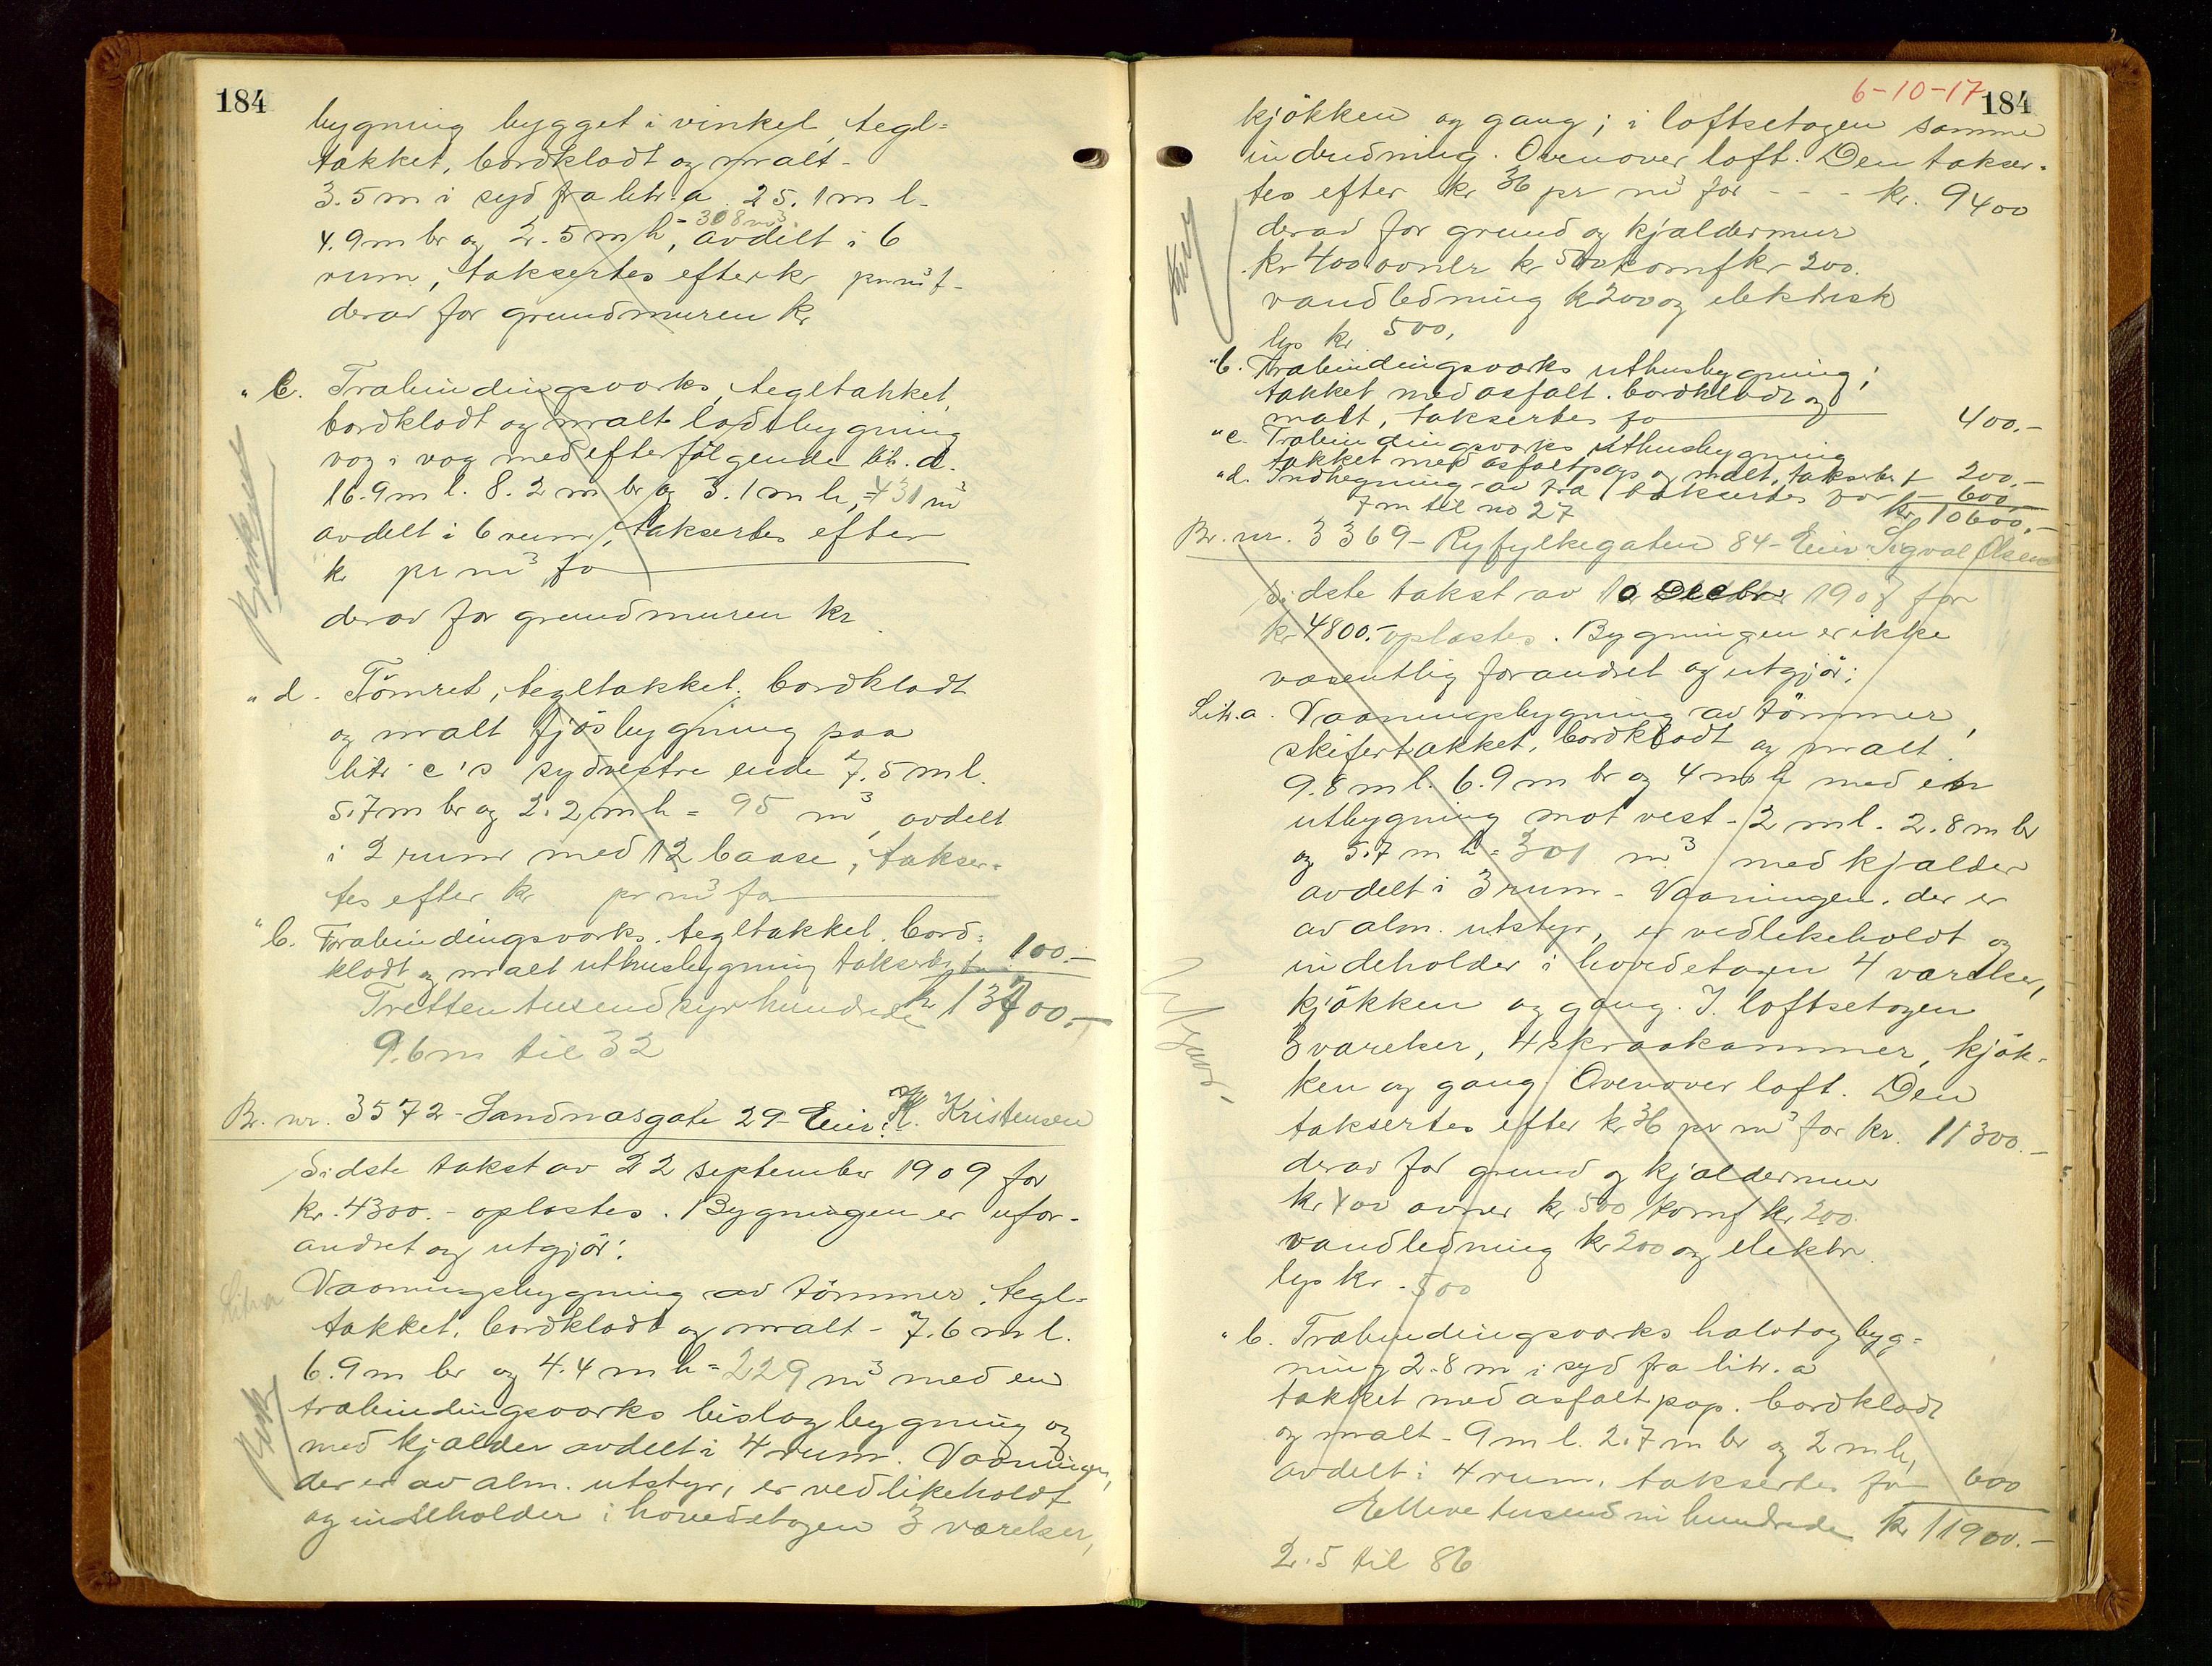 184
bygning bygget i vinkel, tegl-
takket, bordklædt og malt -
3.5 m i syd fra litr. a. 25.1 m l.
4.9 m br og 2.5 m h = 308 m³, avdelt i 6
rum, taksertes efter kr pr m³ f -
derav for grundmuren kr
" c. Træbindingsværks, tegltakket,
bordklædt og malt ladebygning
væg i væg med efterfølgende litr. d.
16.9 m l. 8.2 m br og 3.1 m h, = 430 m³
avdelt i 6 rum, taksertes efter
kr pr m³ for
derav for grundmuren kr
" d. Tömret, tegltakket, bordklædt
og malt fjösbygning paa
litr c's sydvestre ende 7.5 m l.
5.7 m br og 2.2 m h = 95 m³, avdelt
i 2 rum med 12 baase, takser-
tes efter kr pr m³ for
" b. Træbindingsværks, tegltakket, bord-
klædt og malt uthusbygning taksertes f 100.-
Tretten tusend syv hundrede kr 13700.-
9.6 m til 32
Br. nr. 3572 - Sandnæsgate 29 - Eier: K. Kristensen
Sidste takst av 22 september 1909 for
kr. 4300.- oplæstes. Bygningen er ufor-
andret og utgjør:
Litr. a Vaaningsbygning av tömmer, tegl-
takket, bordklædt og malt - 7.6 m l.
6.9 m br og 4.4 m h = 229 m³ med en
træbindingsværks bislagbygning og
med kjælder avdelt i 4 rum. Vaaningen,
der er av alm. utstyr, er vedlikeholdt
og indeholder i hovedetagen 3 værelser,
6-10-17
184
kjökken og gang; i loftsetagen samme
inddeling. Ovenover loft. Den takser-
tes efter kr 36 pr m³ for - - - kr. 9400
derav for grund og kjældermur
kr 400 ovner kr 500 komf kr 200.
vandledning kr 200 og elektrisk
lys kr 500,
" b. Træbindingsværks uthusbygning;
takket med asfalt. bordklædt og
malt, taksertes for 400.-
" c. Træbindingsværks uthusbygning
takket med asfaltpap og malt, taksertes f 200.-
" d. Indhegning av træ taksertes for 600
7 m til no 27 kr 10600.-
Br. nr. 3369 - Ryfylkegaten 84 - Eier: Sigval Olsen
Sidste takst av 10 Decbr 1908 for
kr 4800.- oplæstes. Bygningen er ikke
væsentlig forandret og utgjør:
Litr. a. Vaaningsbygning av tömmer,
skifertækket, bordklædt og malt.
9.8 m l. 6.9 m br og 4 m h med en
utbygning mot vest - 2 m l. 2.8 m br
og 5.7 m h = 301 m³ med kjælder
avdelt i 3 rum - Vaaningen, der er
av alm. utstyr, er vedlikeholdt og
indeholder i hovedetagen 4 værelser,
kjökken og gang. I loftsetagen
3 værelser, 4 skraakammer, kjök-
ken og gang. Ovenover loft. Den
taksertes efter kr 36 pr m³ for kr. 11300.-
derav for grund og kjældermur
kr 400 ovner kr 500 komf kr 200.
vandledning kr 200 og elektr
lys kr. 500
" b. Træbindingsværks halvtagbyg-
ning 2.8 m i syd fra litr. a
takket med asfaltpap. bordklædt
og malt - 9 m l. 2.7 m br og 2 m h,
avdelt i 4 rum, taksertes for 600
Elleve tusend ni hundrede kr 11900.-
2.5 til 86